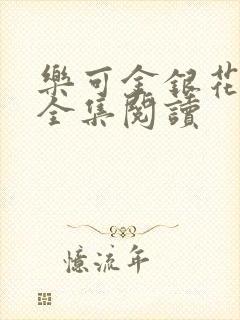 樂可金銀花
全集閱讀
憶流年